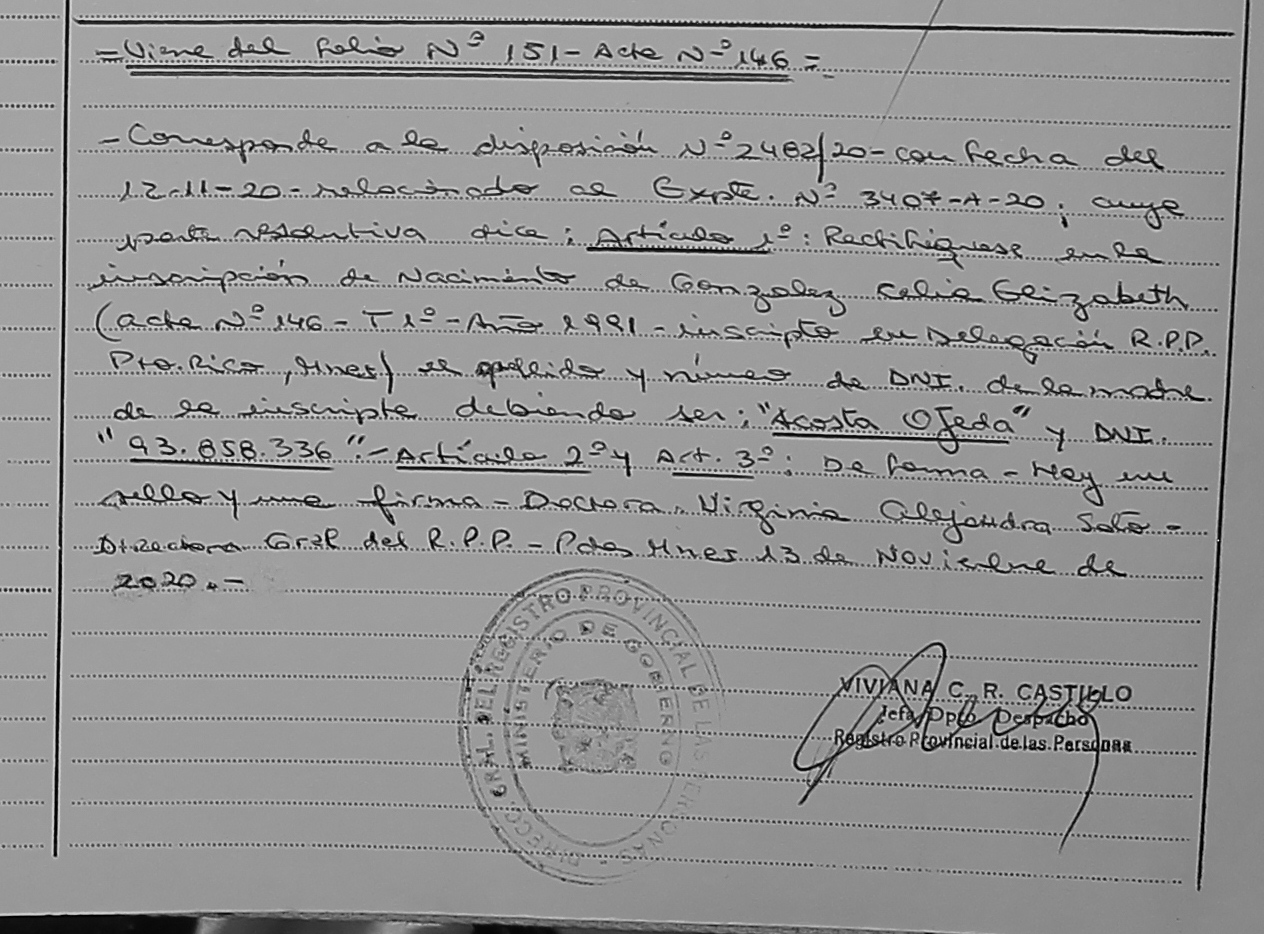 = Viene del folio Nº 151 - Acta Nº 146 =
- Corresponde a la disposición Nº 2482/20 - con fecha del
12-11-20 - relacionado al Expte. Nº 3407-A-20; cuya
parte resolutiva dice: Artículo 1º: Rectifíquese en la
inscripción de Nacimiento de Gonzalez Celia Elizabeth
(acta Nº 146 - T 1º - Año 1991 - inscripto en Delegación R.P.P.
Pto. Rico, Mnes) el apellido y número de DNI. de la madre
de la inscripta debiendo ser: "Acosta Ojeda" y DNI.
"93.858.336". - Artículo 2º y Art. 3º: De forma - Hay un
sello y una firma - Doctora. Virginia Alejandra Soto -
Directora Gral del R.P.P. - Pdas Mnes 13 de Noviembre de
2020. -
DIRECC. GRAL. DEL REGISTRO PROVINCIAL DE LAS PERSONAS -
MINISTERIO DE GOBIERNO
VIVIANA C. R. CASTILLO
Jefa Dpto Despacho
Registro Provincial de las Personas